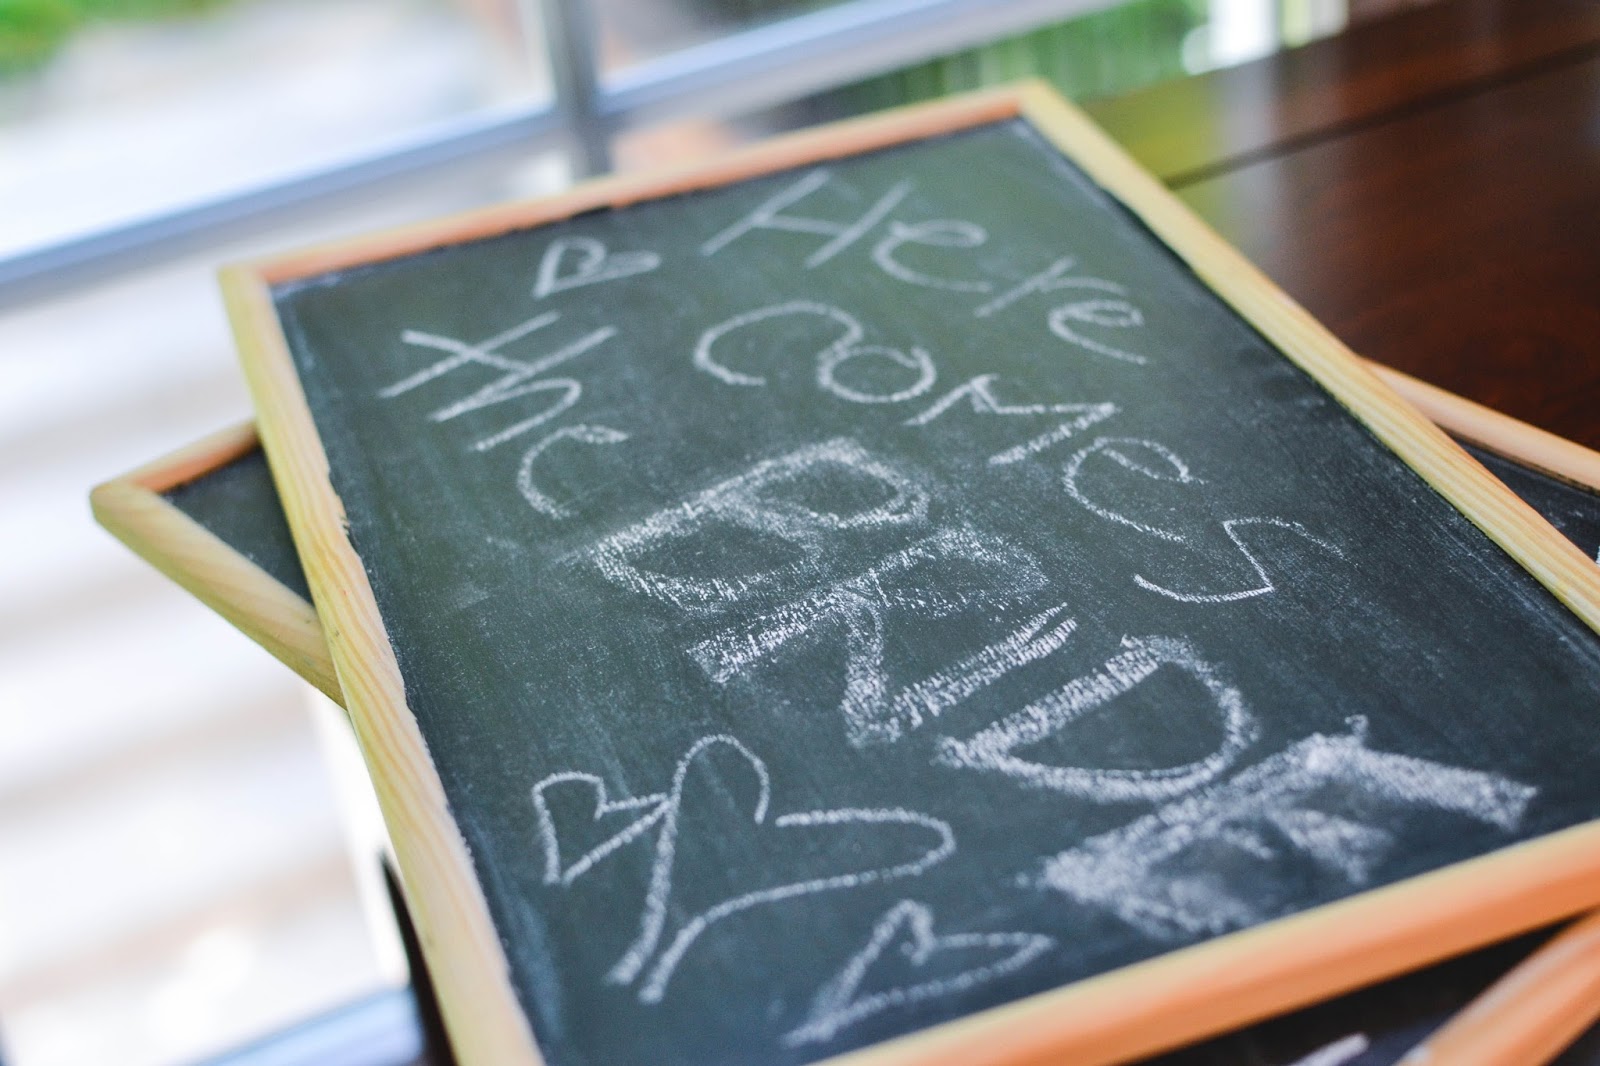 Here
comes
the
BRIDE